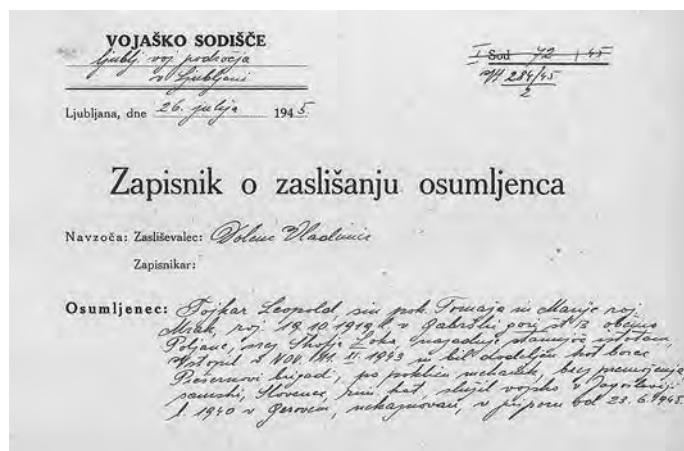 VOJAŠKO SODIŠČE
ljublj. voj. področja
v Ljubljani
Ljubljana, dne 26. julija 1945
I Sod 72 / 45
284/45
2
Zapisnik o zaslišanju osumljenca
Navzoča: Zasliševalec: Dolenc Vladimir
Zapisnikar:
Osumljenec: Fojkar Leopold, sin pok. Tomaja in Marije roj.
Mrak, roj. 18.10.1919 v Gabrški gori št. 13 občina
Poljane, srez Škofja Loka, nazadnje stanujoč istotam,
Vstopil v NOV 11. II. 1943 in bil dodeljen kot borec
Prešernovi brigadi, po poklicu mehanik, brez premoženja
samski, Slovenec, rim. kat., služil vojsko v Jugoslaviji
l. 1940 v Gerovem, nekaznovan, v priporu od 23. 6. 1945.